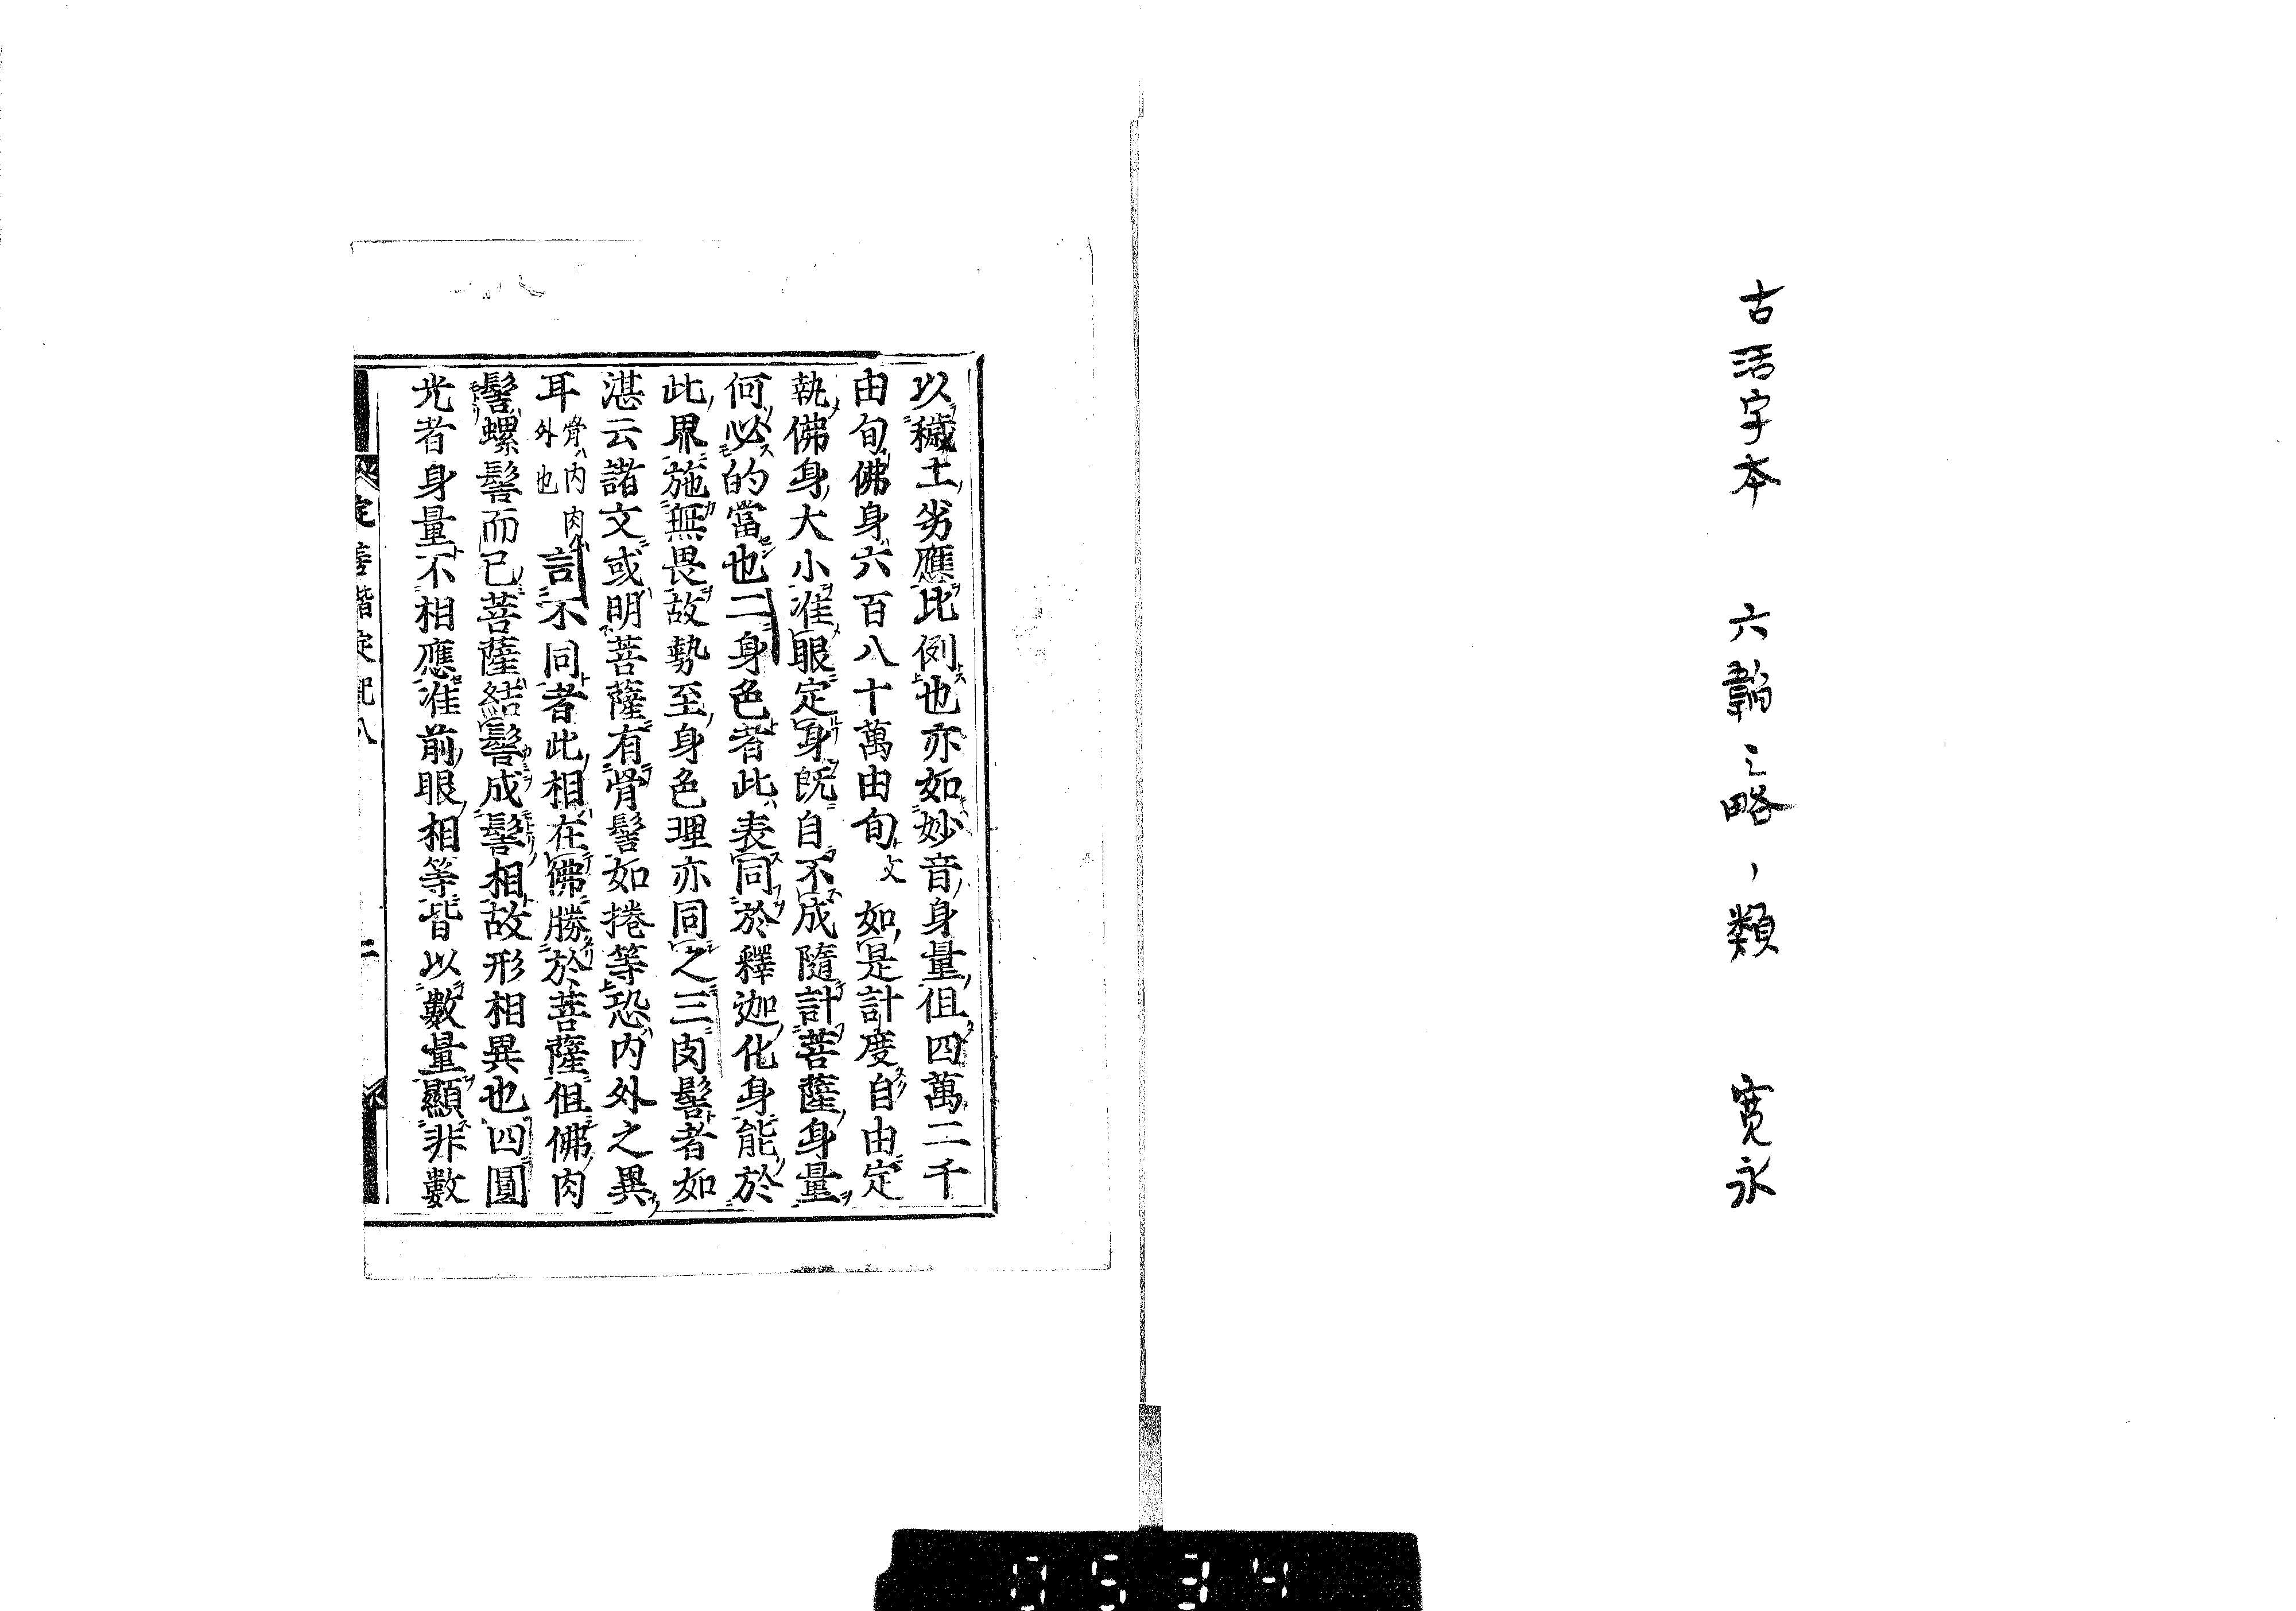 古活字本　六韜三略ノ類　寛永
以穢土劣應比例也亦如妙音身量但四萬二千
由旬佛身六百八十萬由旬文如是計度自由定
執佛身大小准眼定身既自不成隨計菩薩身量
何必的當也二身色者此表同於釋迦化身能於
此界施無畏故勢至身色理亦同之三肉髻者如
湛云諸文或明菩薩有骨髻如捲等恐内外之異
耳骨内肉外也言不同者此相在佛勝於菩薩但佛肉
髻螺髻而已菩薩結髻成髻相故形相異也四圓
光者身量不相應准前眼相等皆以數量顯非數
定善
記八
二
0534